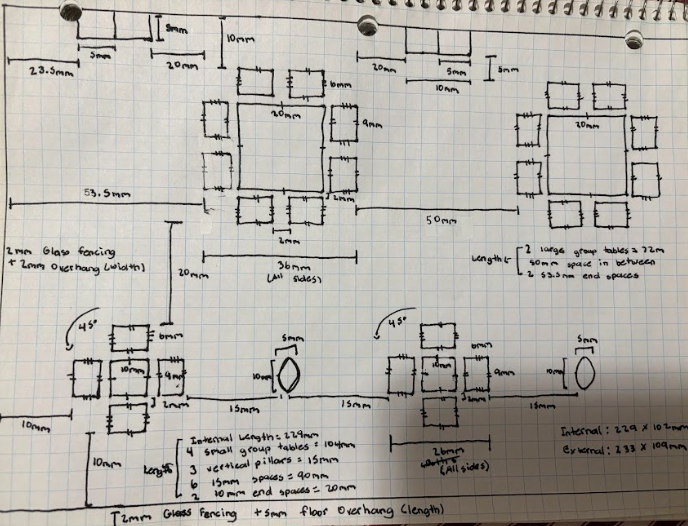 8mm
10mm
5mm
20mm
23.5mm
20mm
5mm
5mm
10mm
6mm
20mm
9mm
20mm
53.5mm
2mm
2mm
50mm
2mm Glass fencing
+ 2mm overhang (width)
20mm
36mm
(All sides)
Length
2 large group tables = 72m
50mm space in between
2 53.5mm end spaces
45°
6mm
5mm
45°
6mm
5mm
10mm
9mm
10mm
10mm
9mm
10mm
2mm
2mm
10mm
15mm
15mm
15mm
10mm
Length
Internal Length = 229mm
4 small group tables = 104mm
3 vertical pillars = 15mm
6 15mm spaces = 90mm
2 10mm end spaces = 20mm
26mm
(All sides)
Internal: 229 x 102mm
External: 233 x 109mm
2mm Glass fencing + 5mm floor overhang (length)